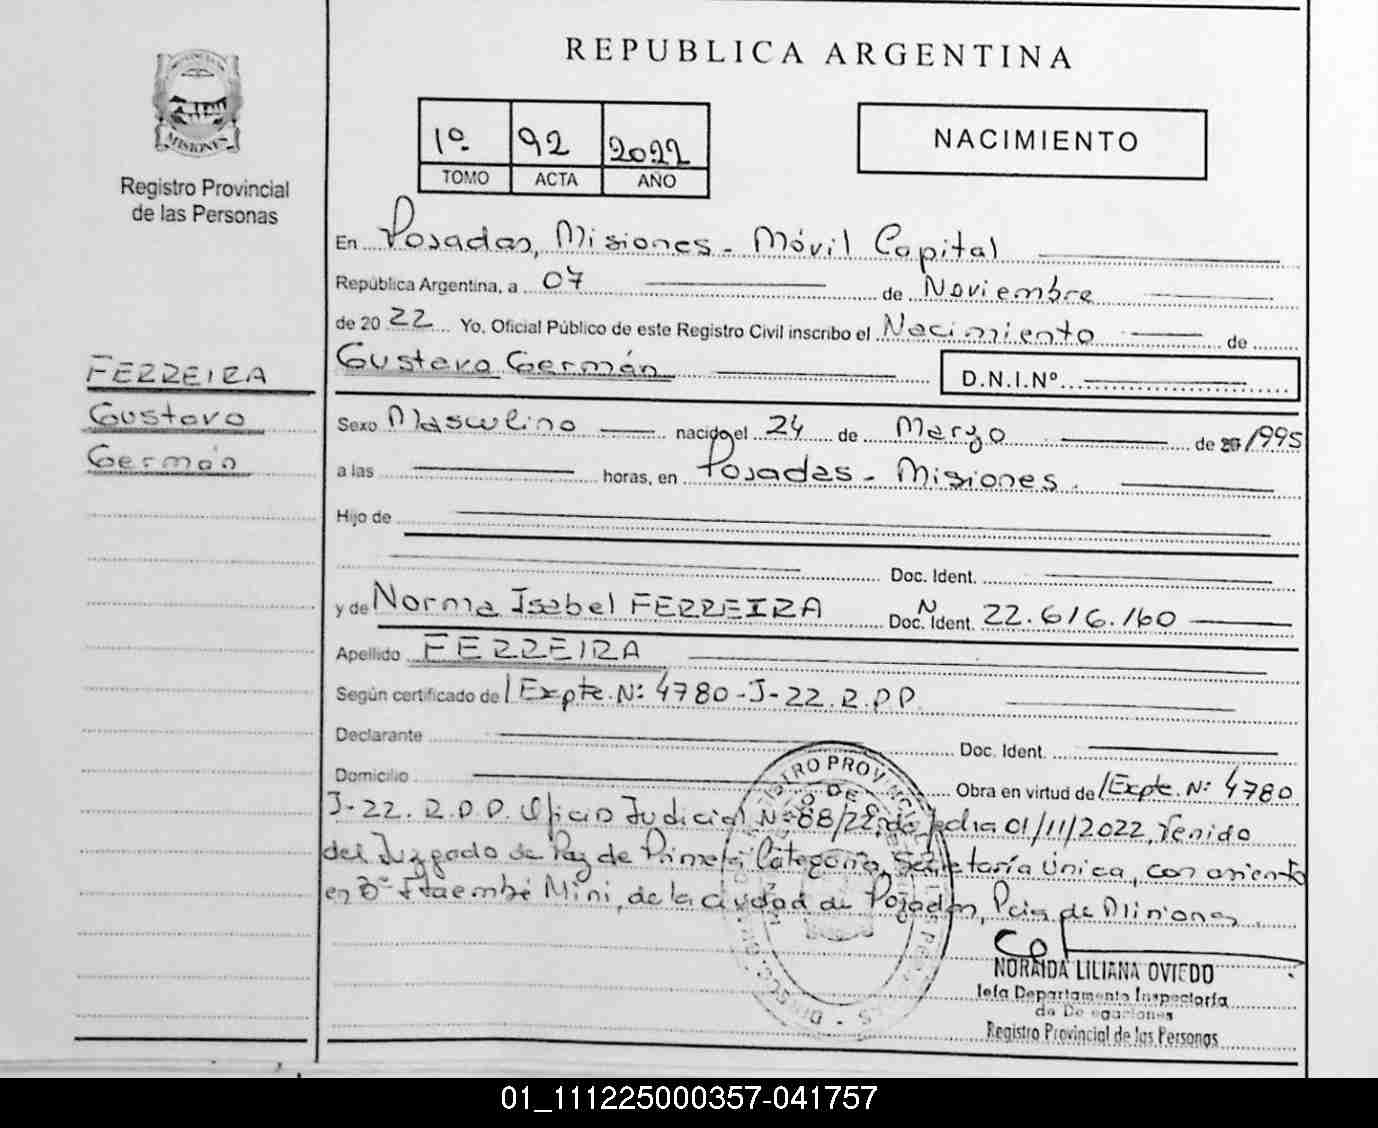 REPUBLICA ARGENTINA
MISIONES
Registro Provincial
de las Personas
1º 92 2022
TOMO ACTA AÑO
NACIMIENTO
En Posadas, Misiones - Móvil Capital
República Argentina, a 07 de Noviembre
de 20 22 Yo, Oficial Público de este Registro Civil inscribo el Nacimiento de
Gustavo Germán D.N.I.Nº
FERREIRA
Gustavo
Germán
Sexo Masculino nacido el 24 de Marzo de 1995
a las horas, en Posadas - Misiones.
Hijo de
Doc. Ident.
y de Norma Isabel FERREIRA Doc. Ident. N 22.616.160
Apellido FERREIRA
Según certificado de Expte. Nº 4780-J-22.R.P.P.
Declarante Doc. Ident.
Domicilio Obra en virtud de Expte. Nº 4780
J-22. R.P.P. Oficio Judicial Nº 88/22, de fecha 01/11/2022, Venido
del Juzgado de Paz de Primera Categoría, Secretaría Única, con asiento
en Bº Itaembé Mini, de la ciudad de Posadas, Pcia de Misiones.
NORAIDA LILIANA OVIEDO
Jefa Departamento Inspectoría
de Delegaciones
Registro Provincial de las Personas
01_111225000357-041757